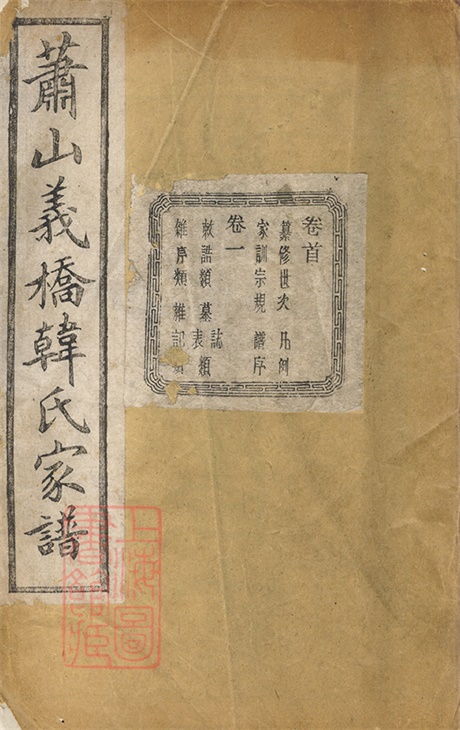 蕭山義橋韓氏家譜
卷首
纂修世次 凡例
家訓宗規 譜序
卷一
敕誥類 墓誌表類
雜序類 雜記
上海圖書館藏